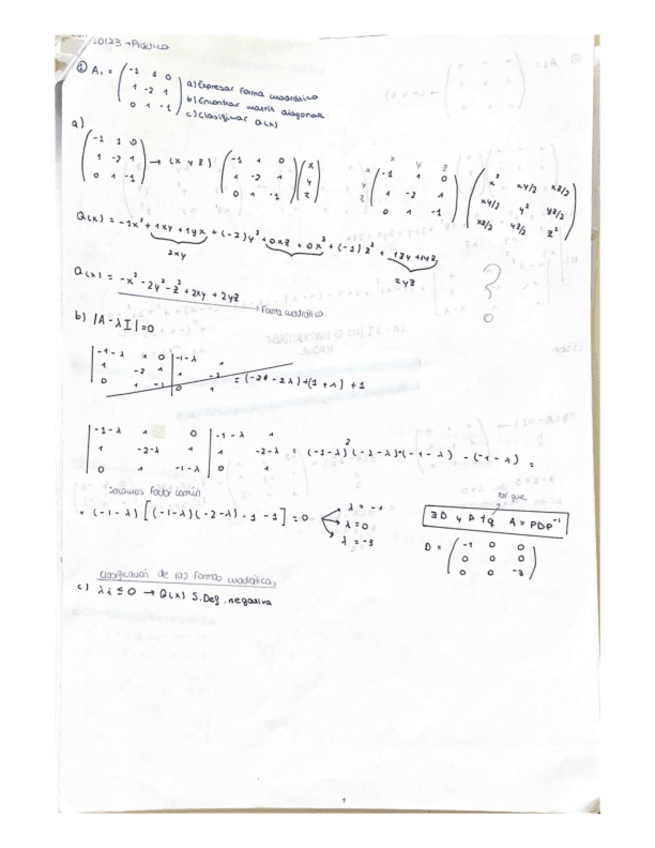 10123 → Práctica
① A₁ = ( -1 1 0 ; 1 -2 1 ; 0 1 -1 )
a) Expresar forma cuadrática
b) Encontrar matriz diagonal
c) Clasificar Q(x)
a)
( -1 1 0 ; 1 -2 1 ; 0 1 -1 ) → (x y z) ( -1 1 0 ; 1 -2 1 ; 0 1 -1 ) ( x ; y ; z )
x y z
( -1 1 0 ; 1 -2 1 ; 0 1 -1 ) ( x² xy/2 xz/2 ; xy/2 y² yz/2 ; xz/2 yz/2 z² )
Q(x) = -1x² + 1xy + 1yx + (-2)y² + 0xz + 0x² + (-1)z² + 1zy + 1yz
2xy
2yz
Q(x) = -x² - 2y² - z² + 2xy + 2yz
→ Forma cuadrática
?
b) |A - λI| = 0
| -1-λ 1 0 ; 1 -2 1 ; 0 1 -1 | -1-λ 1 ; 1 -2 ; 0 1 = (-2λ - 2λ) + (1 + λ) + 1
| -1-λ 1 0 ; 1 -2-λ 1 ; 0 1 -1-λ | -1-λ 1 ; 1 -2-λ ; 0 1 = (-1-λ)²(-2-λ) - (-1-λ) - (-1-λ) =
sacamos factor común
= (-1-λ) [(-1-λ)(-2-λ) -1 -1] = 0
λ = -1
λ = 0
λ = -3
tal que
∃D y P tq A = PDP⁻¹
D = ( -1 0 0 ; 0 0 0 ; 0 0 -3 )
Clasificación de las formas cuadráticas
c) λi ≤ 0 → Q(x) S.Def. negativa
1